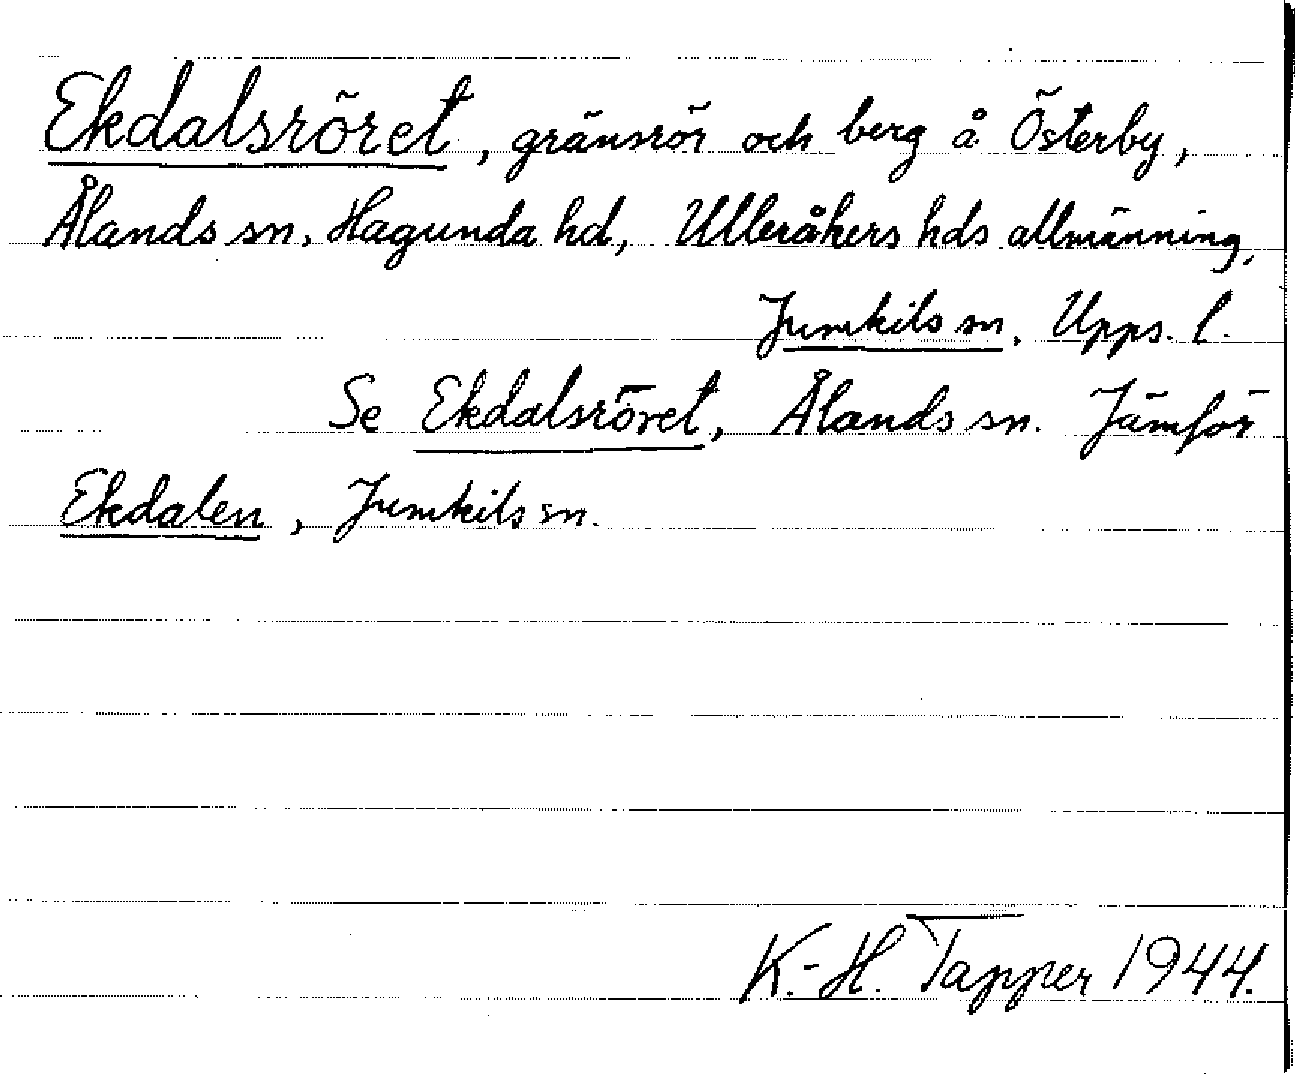 Ekdalsröret, gränsrör och berg å Österby,
Ålands sn, Hagunda hd, Ulleråkers hds allmänning,
Jumkils sn, Upps. l.
Se Ekdalsröret, Ålands sn. Jämför
Ekdalen, Jumkils sn.
K.-H. Tapper 1944.